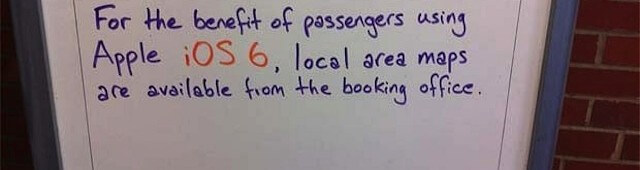 For the benefit of passengers using
Apple iOS 6, local area maps
are available from the booking office.